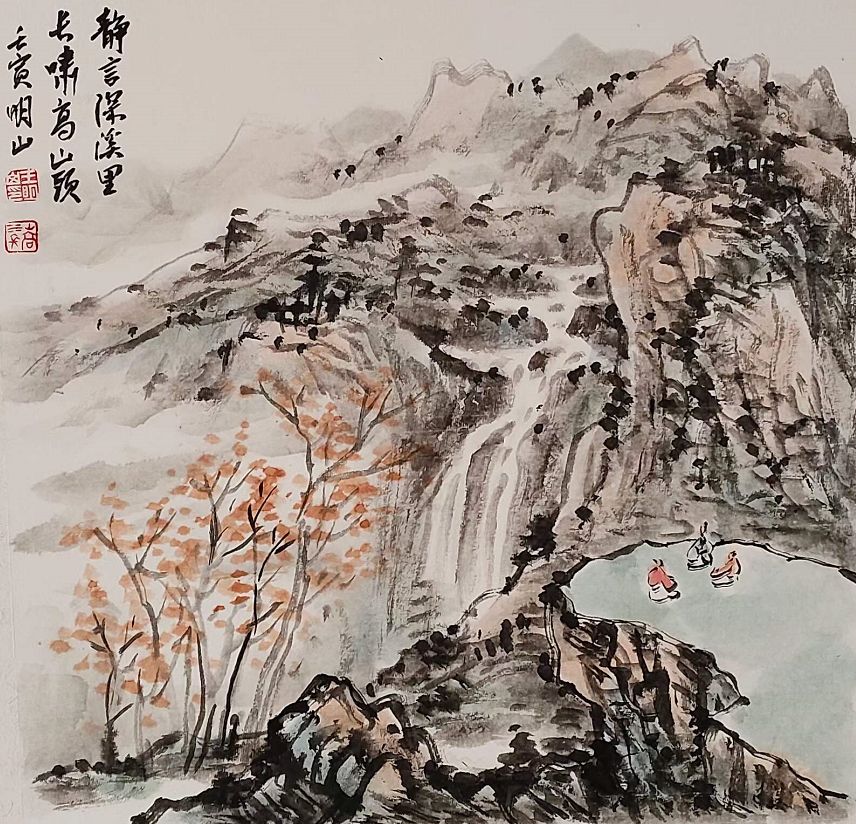 静言深溪里
长啸高山头
壬寅明山